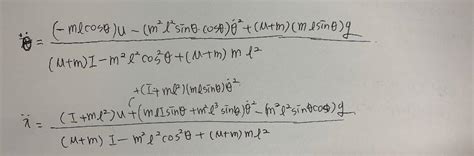 θ̈ = (-mlcosθ)u - (m²l²sinθcosθ)θ̇² + (M+m)(mlsinθ)g
(M+m)I - m²l²cos²θ + (M+m)ml²
+(I+ml²)(mlsinθ)θ̇²
ẍ = (I+ml²)u + (mlIsinθ + m²l³sinθ)θ̇² - (m²l²sinθcosθ)g
(M+m)I - m²l²cos²θ + (M+m)ml²